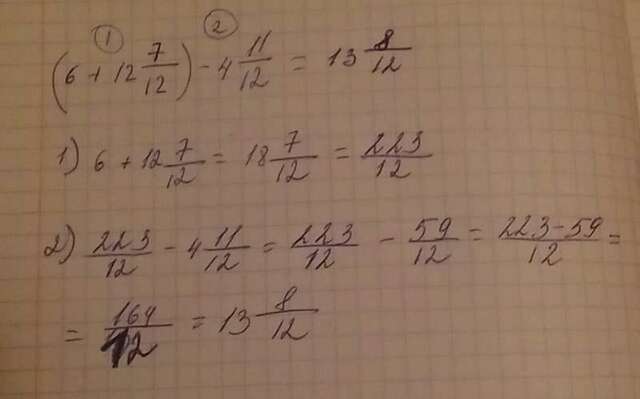 ① ②
(6 + 12 7/12) - 4 11/12 = 13 8/12
1) 6 + 12 7/12 = 18 7/12 = 223/12
2) 223/12 - 4 11/12 = 223/12 - 59/12 = 223-59/12 =
= 164/12 = 13 8/12